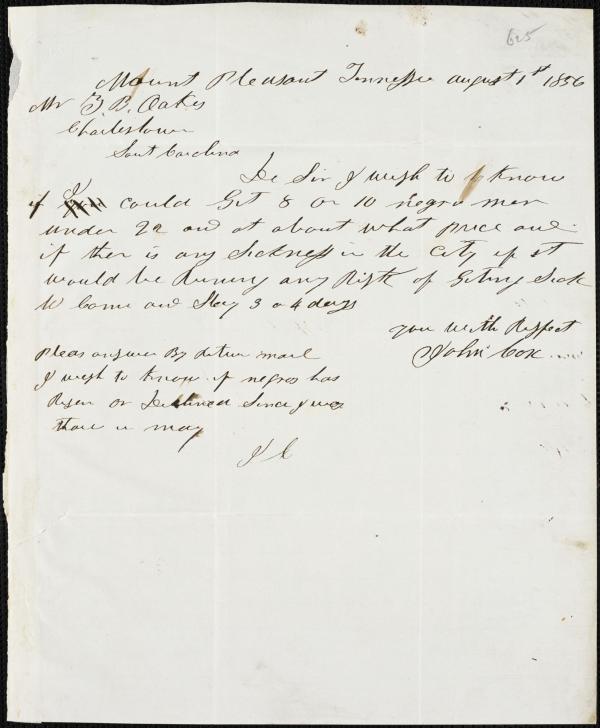 625
Mount Pleasant Tennessee august 1st 1856
Mr Z B. Oakes
Charlestown
Sout Carolina
De Sir I wish to Know
if I could Get 8 or 10 negro men
under 22 and at about what price and
if ther is any Sickness in the City if it
would be Runing any Risk of Geting Sick
to Come and Stay 3 or 4 days
you with Respect
John Cox
Pleas answer By Return mail
I wish to Know if negros has
Risen or Declined Since I was
thare in may
J C